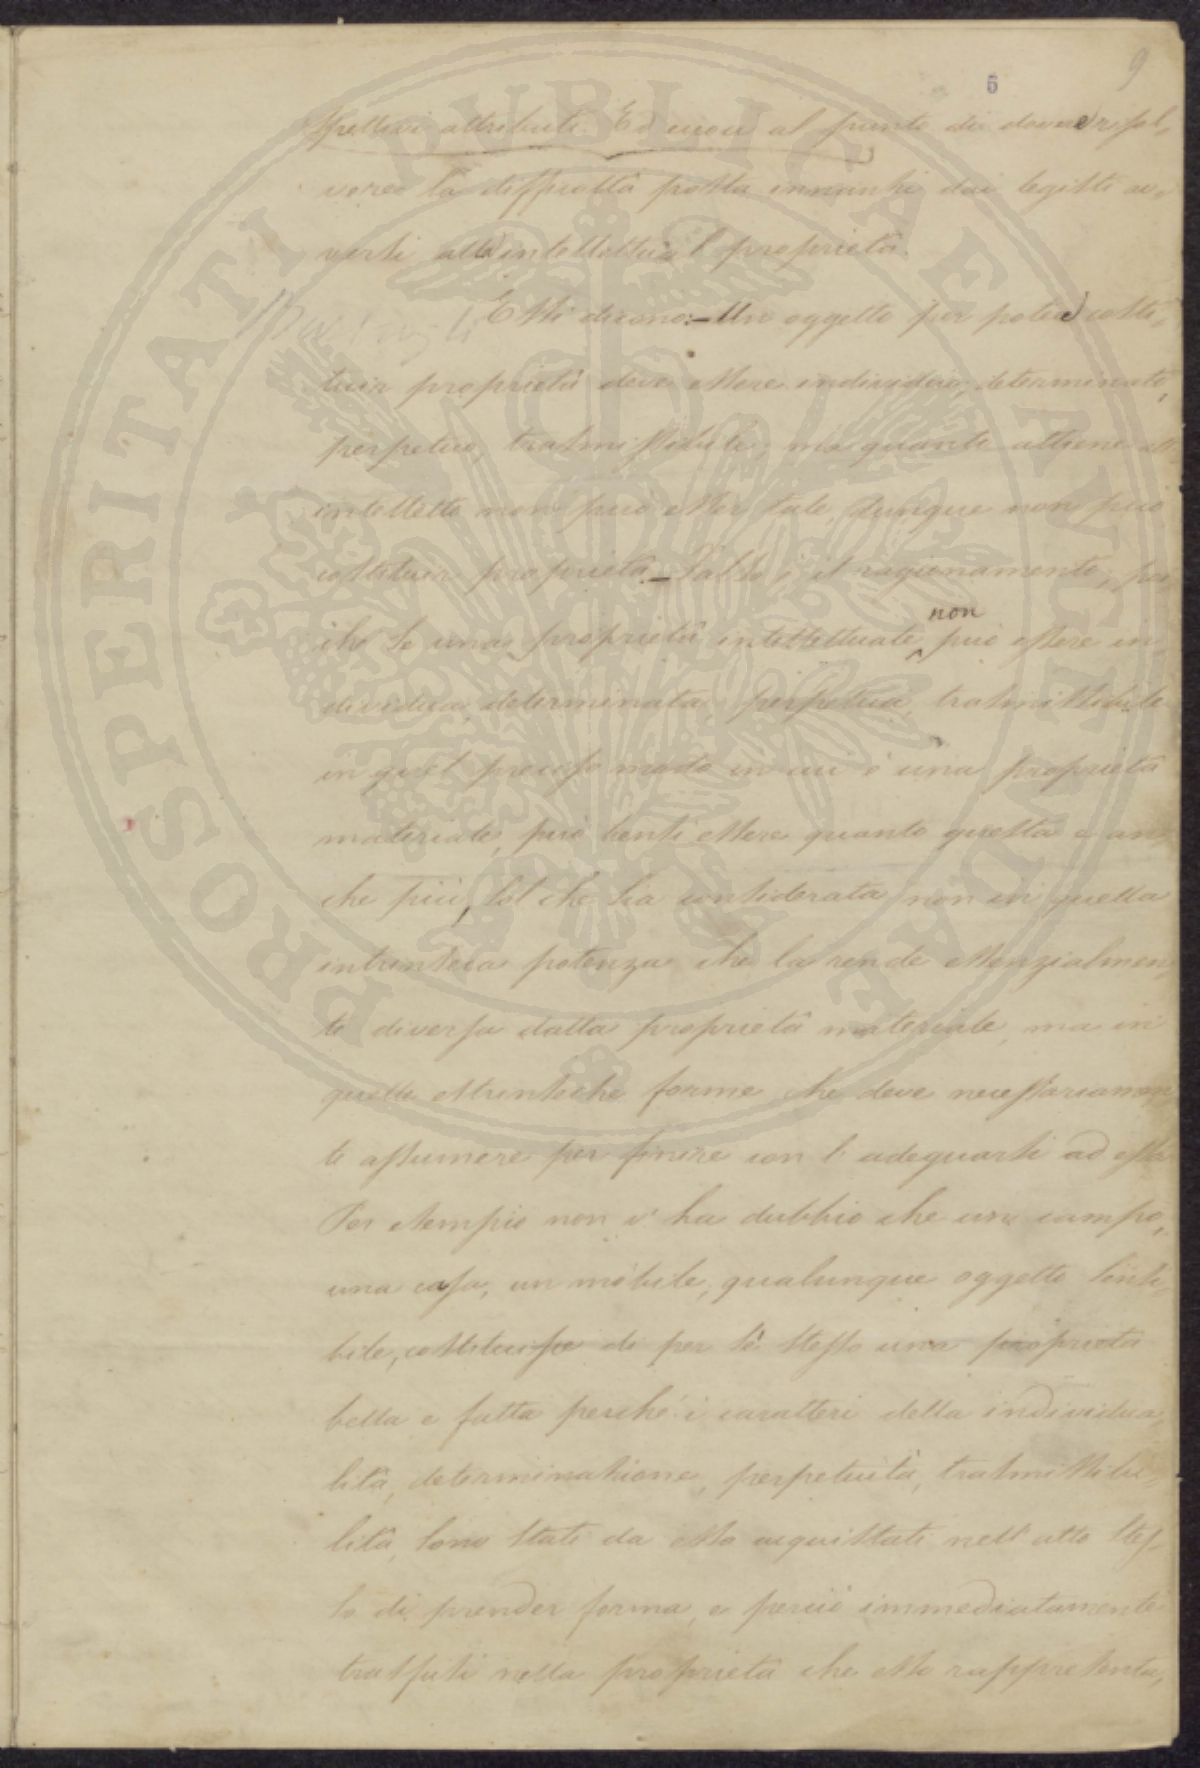 9
5
spettivi attributi. Ed eccoci al punto di dover risol-
vere la difficoltà posta innanzi dai legisti av-
versi all'intellettual proprietà.
Essi dicono: - Un oggetto per poter costi-
tuir proprietà deve essere individuo, determinato,
perpetuo, trasmissibile; ma quanto attiene all'
intelletto non può esser tale, dunque non può
costituir proprietà - Falso è il ragionamento, poi
chè se una proprietà intellettuale non può essere in
dividua, determinata, perpetua, trasmissibile
in quel preciso modo in cui è una proprietà
materiale, può bensì essere quanto questa e an
che più, sol che sia considerata non in quella
intrinseca potenza che la rende essenzialmen
te diversa dalla proprietà materiale, ma in
quelle estrinseche forme che deve necessariamen
te assumere per finire con l'adeguarsi ad essa
Per esempio non v'ha dubbio che un campo,
una casa, un mobile, qualunque oggetto sensi-
bile, costituisce di per sè stesso una proprietà
bella e fatta perchè i caratteri della individua
lità, determinazione, perpetuità, trasmissibi-
lità, sono stati da esso acquistati nell'atto stes-
so di prender forma, e perciò immediatamente
trasfusi nella proprietà che esso rappresenta,
PROSPERITATI PVBLICAE AVGENDAE